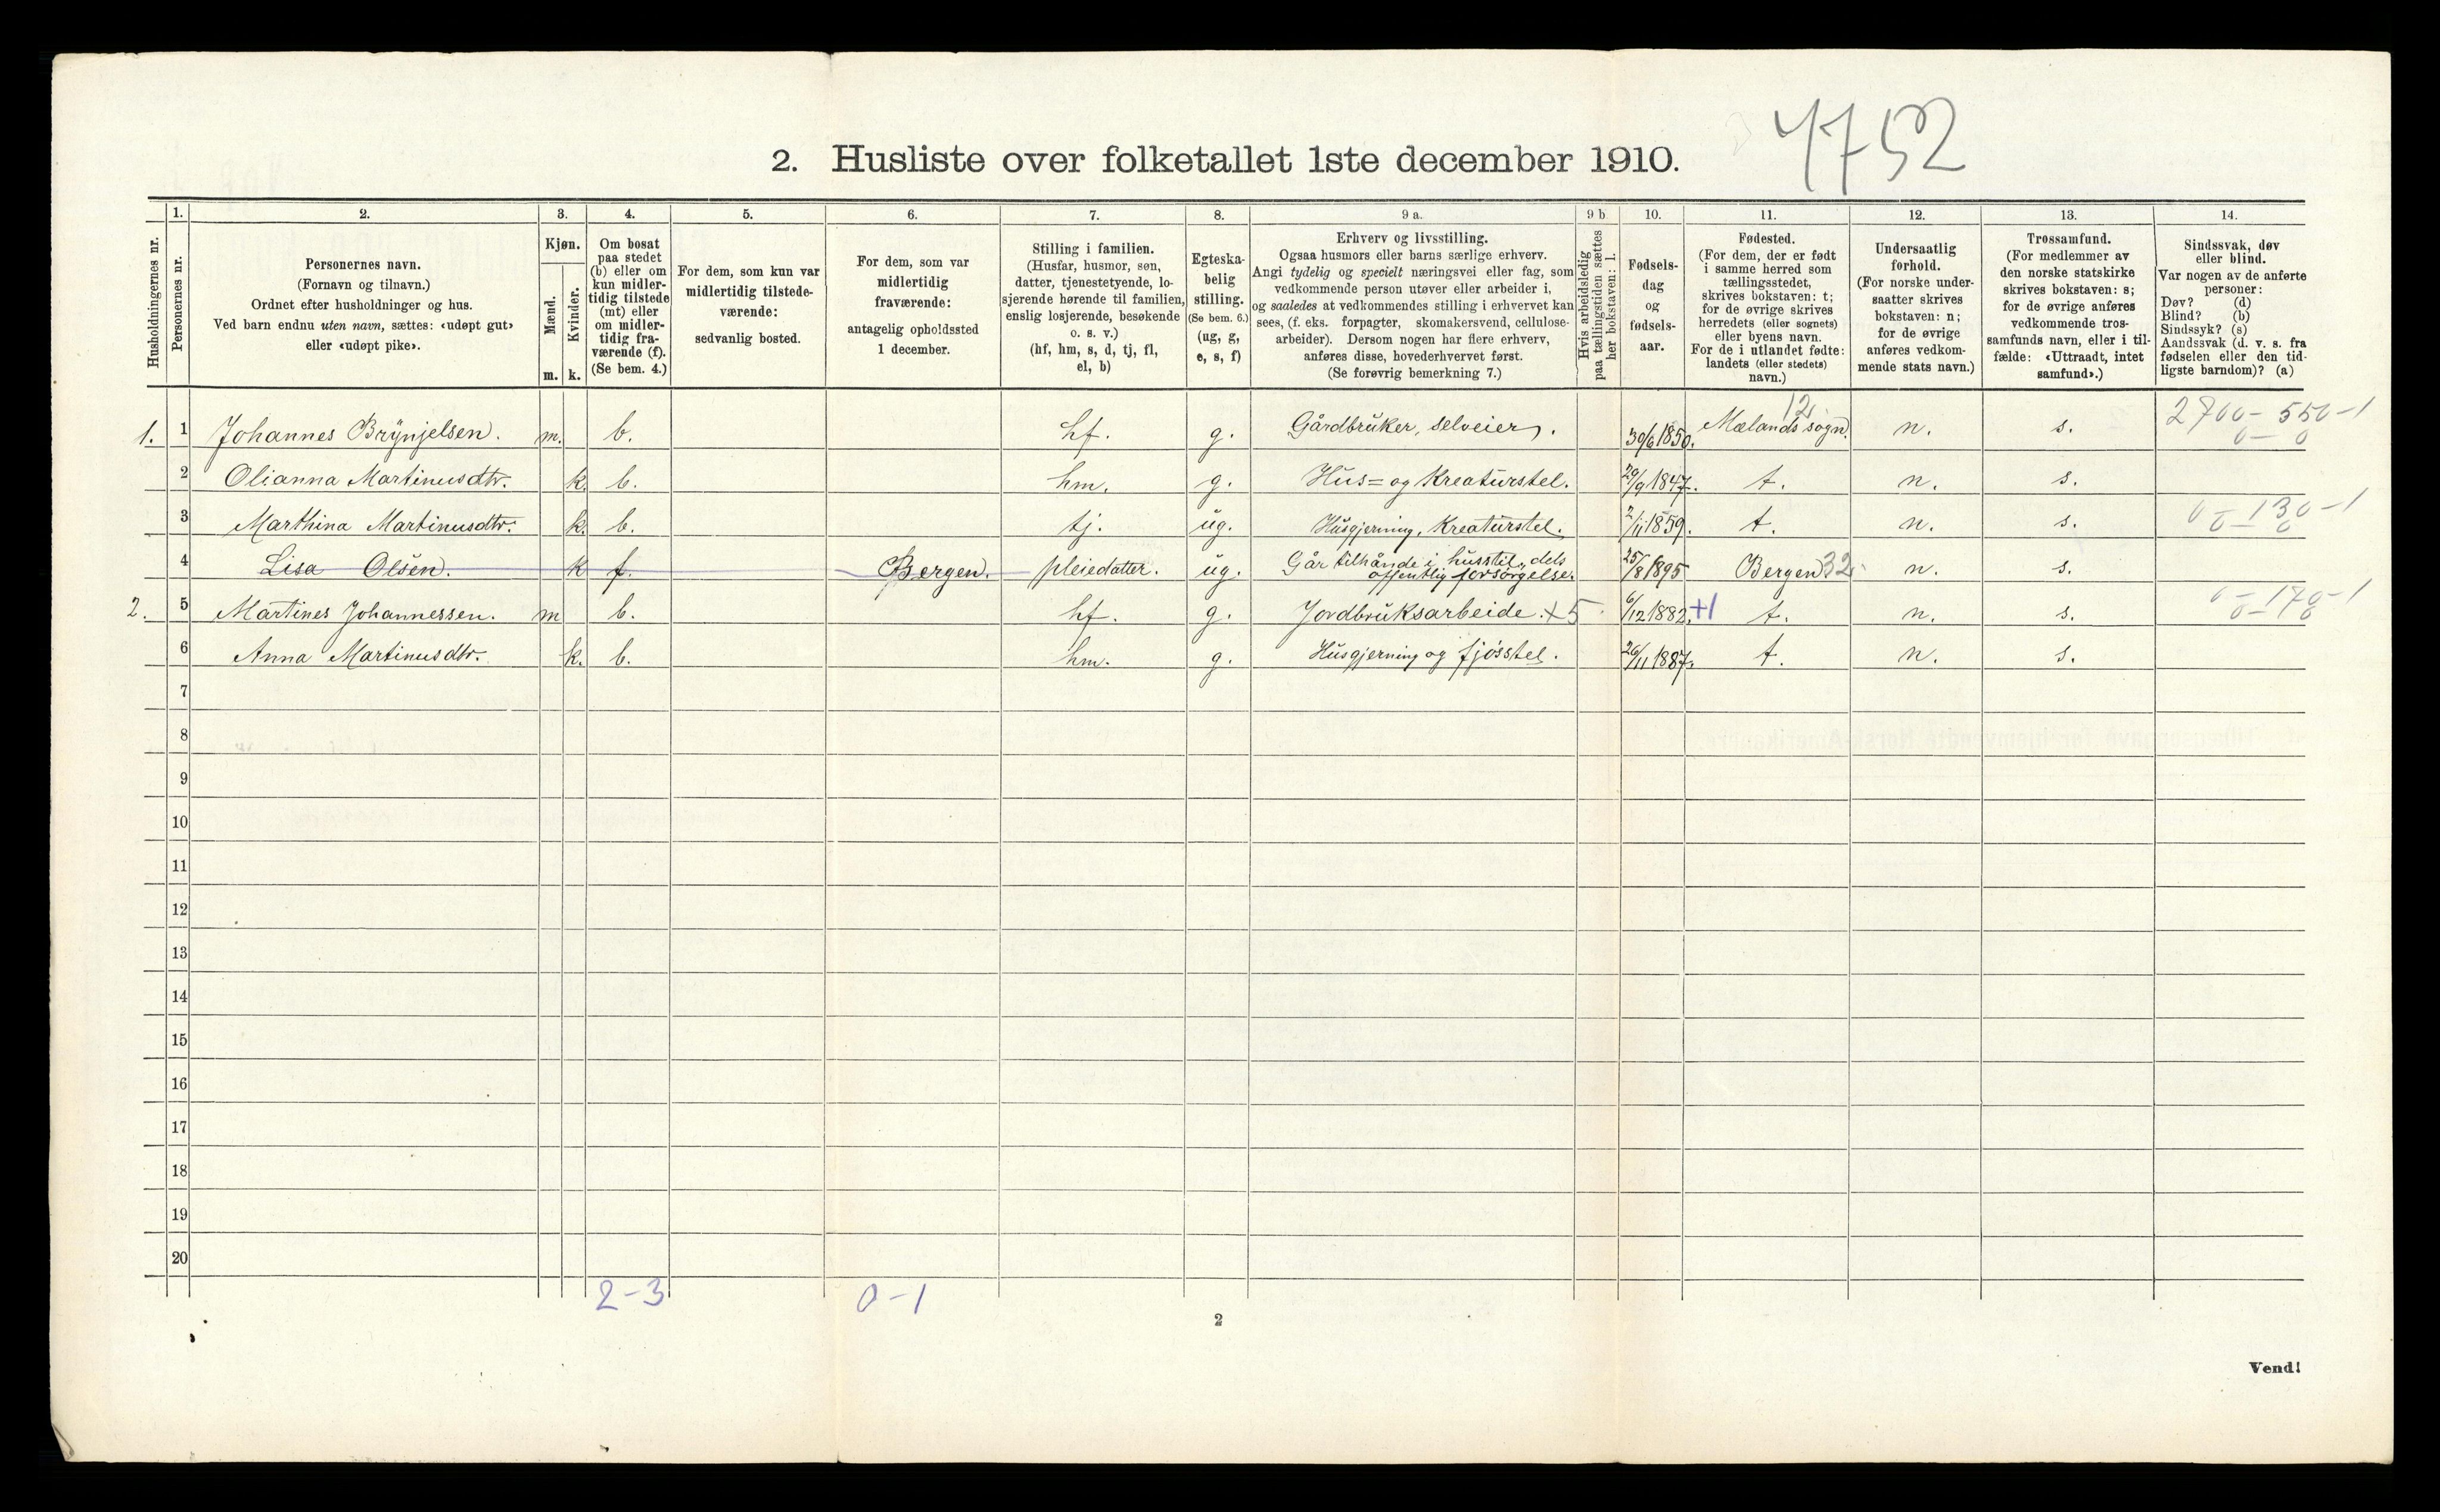 4752
2. Husliste over folketallet 1ste december 1910.
Husholdningernes nr.
1.
Personernes nr.
2.
Personernes navn.
(Fornavn og tilnavn.)
Ordnet efter husholdninger og hus.
Ved barn endnu uten navn, sættes: «udøpt gut»
eller «udøpt pike».
3.
Kjøn.
Mænd.
Kvinder.
m. k.
4.
Om bosat
paa stedet
(b) eller om
kun midler-
tidig tilstede
(mt) eller
om midler-
tidig fra-
værende (f).
(Se bem. 4.)
5.
For dem, som kun var
midlertidig tilstede-
værende:
sedvanlig bosted.
6.
For dem, som var
midlertidig
fraværende:
antagelig opholdssted
1 december.
7.
Stilling i familien.
(Husfar, husmor, søn,
datter, tjenestetyende, lo-
sjerende hørende til familien,
enslig losjerende, besøkende
o. s. v.)
(hf, hm, s, d, tj, fl,
el, b)
8.
Egteska-
belig
stilling.
(Se bem. 6.)
(ug, g,
e, s, f)
9 a.
Erhverv og livsstilling.
Ogsaa husmors eller barns særlige erhverv.
Angi tydelig og specielt næringsvei eller fag, som
vedkommende person utøver eller arbeider i,
og saaledes at vedkommendes stilling i erhvervet kan
sees, (f. eks. forpagter, skomakersvend, cellulose-
arbeider). Dersom nogen har flere erhverv,
anføres disse, hovederhvervet først.
(Se forøvrig bemerkning 7.)
9 b
Hvis arbeidsledig
paa tællingstiden sættes
her bokstaven: l.
10.
Fødsels-
dag
og
fødsels-
aar.
11.
Fødested.
(For dem, der er født
i samme herred som
tællingsstedet,
skrives bokstaven: t;
for de øvrige skrives
herredets (eller sognets)
eller byens navn.
For de i utlandet fødte:
landets (eller stedets)
navn.)
12.
Undersaatlig
forhold.
(For norske under-
saatter skrives
bokstaven: n;
for de øvrige
anføres vedkom-
mende stats navn.)
13.
Trossamfund.
(For medlemmer av
den norske statskirke
skrives bokstaven: s;
for de øvrige anføres
vedkommende tros-
samfunds navn, eller i til-
fælde: «Uttraadt, intet
samfund».)
14.
Sindssvak, døv
eller blind.
Var nogen av de anførte
personer:
Døv? (d)
Blind? (b)
Sindssyk? (s)
Aandssvak (d. v. s. fra
fødselen eller den tid-
ligste barndom)? (a)
1. 1 Johannes Brynjelsen. m. b. hf. g. Gårdbruker, selveier. 30/6 1850. Mælands sogn. 12 n. s. 2700 - 550 - 1
0 - 0
2 Olianna Martinusdtr. k. b. hm. g. Hus= og Kreaturstel. 29/9 1847. t. n. s.
3 Marthina Martinusdtr. k. b. tj. ug. Husgjerning, Kreaturstel. 2/11 1859. t. n. s. 0 - 130 - 1
0 0
4 Lisa Olsen. k f. Bergen. pleiedatter. ug. Går tilhånde i husstel, dels
offentlig forsørgelse. 25/8 1895 Bergen 32 n. s.
2. 5 Martines Johannessen. m b. hf. g. Jordbruksarbeide. +5 6/12 1882. +1 t. n. s. 0 - 170 - 1
0 0
6 Anna Martinusdtr. k. b. hm. g. Husgjerning og fjøsstel. 26/11 1887. t. n. s.
7
8
9
10
11
12
13
14
15
16
17
18
19
20
2-3 0-1
2
Vend!